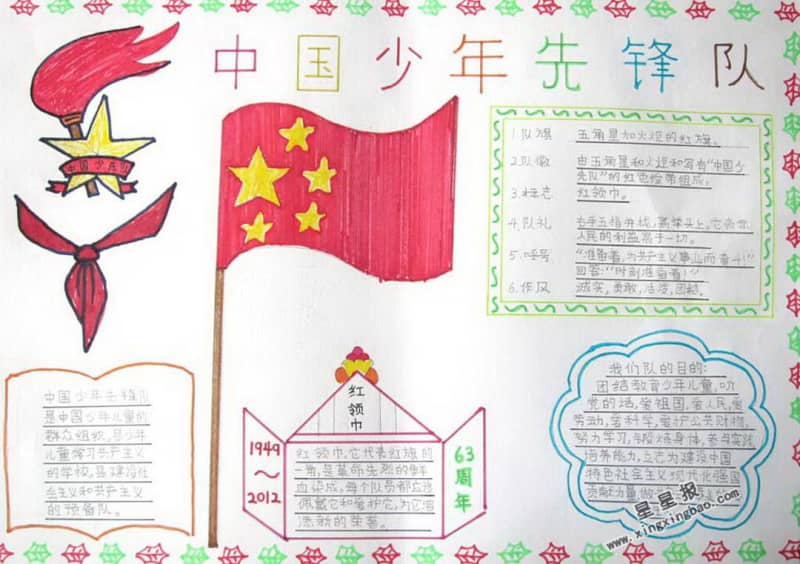 中国少年先锋队
中国少先队
1.队旗 五角星加火炬的红旗。
2.队徽 由五角星和火炬和写有“中国少
先队”的红色绶带组成。
3.标志 红领巾。
4.队礼 右手五指并拢，高举头上，它表示
人民的利益高于一切。
5.呼号 “准备着，为共产主义事业而奋斗！”
回答：“时刻准备着！”
6.作风 诚实，勇敢，活泼，团结。
中国少年先锋队
是中国少年儿童的
群众组织，是少年
儿童学习共产主义
的学校，是建设社
会主义和共产主义
的预备队。
红领巾
1949
～
2012
红领巾，它代表红旗的
一角，是革命先烈的鲜
血染成，每个队员都应该
佩戴它和爱护它，为它增
添新的荣誉。
63周年
我们队的目的：
团结教育少年儿童，听
党的话，爱祖国，爱人民，爱
劳动，爱科学，爱护公共财物，
努力学习，锻炼身体，参与实践，
培养能力，立志为建设中国
特色社会主义现代化强国
贡献力量，做
星星报
www.xingxingbao.com